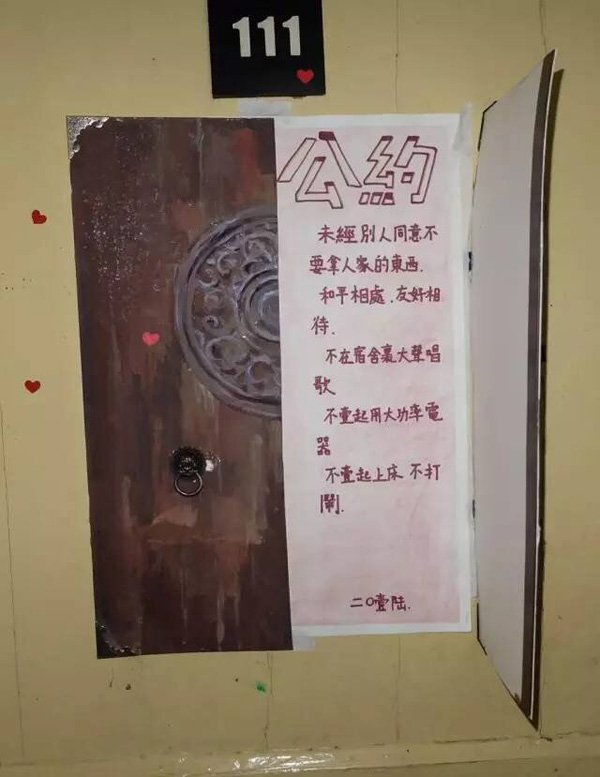 111
公約
未經別人同意不
要拿人家的東西.
和平相處.友好相
待.
不在宿舍裏大聲唱
歌
不壹起用大功率電
器
不壹起上床 不打
鬧.
二〇壹陆.